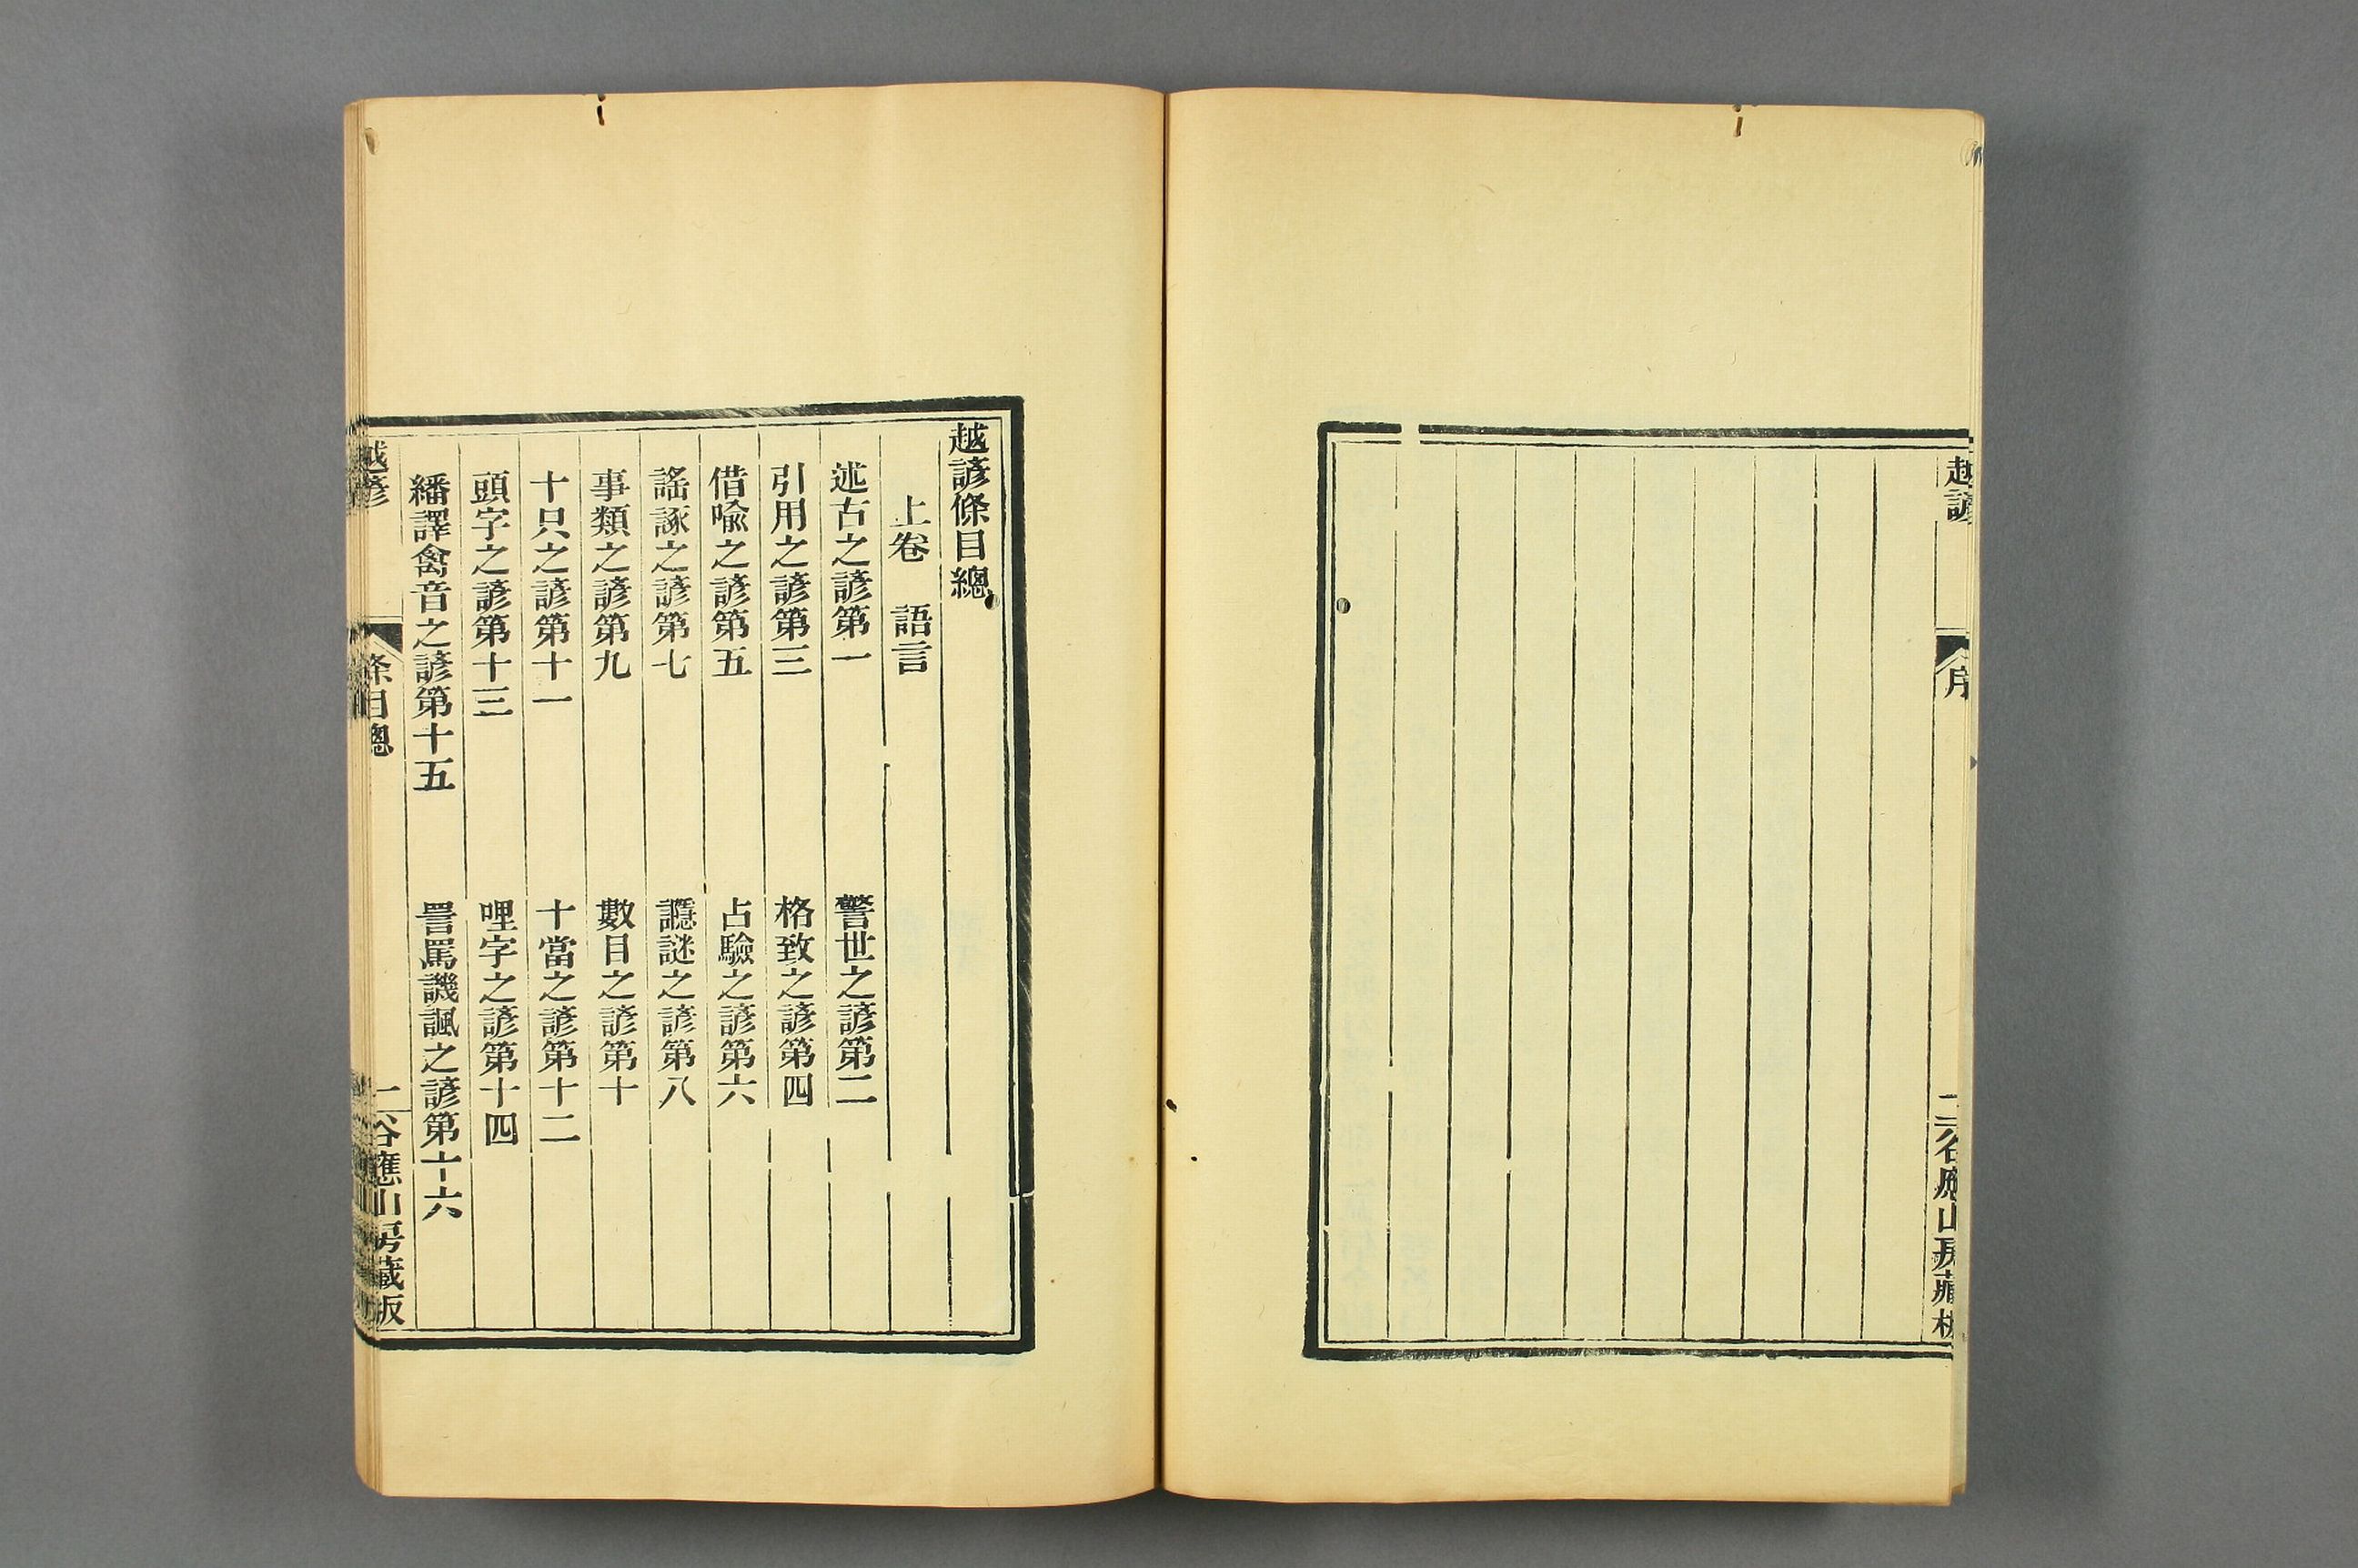 越諺
序
二
谷應山房藏板
越諺條目總
上卷 語言
述古之諺第一 警世之諺第二
引用之諺第三 格致之諺第四
借喻之諺第五 占驗之諺第六
謠諑之諺第七 讔謎之諺第八
事類之諺第九 數目之諺第十
十只之諺第十一 十當之諺第十二
頭字之諺第十三 哩字之諺第十四
繙譯禽音之諺第十五 詈罵譏諷之諺第十六
越諺
條目總
一
谷應山房藏板